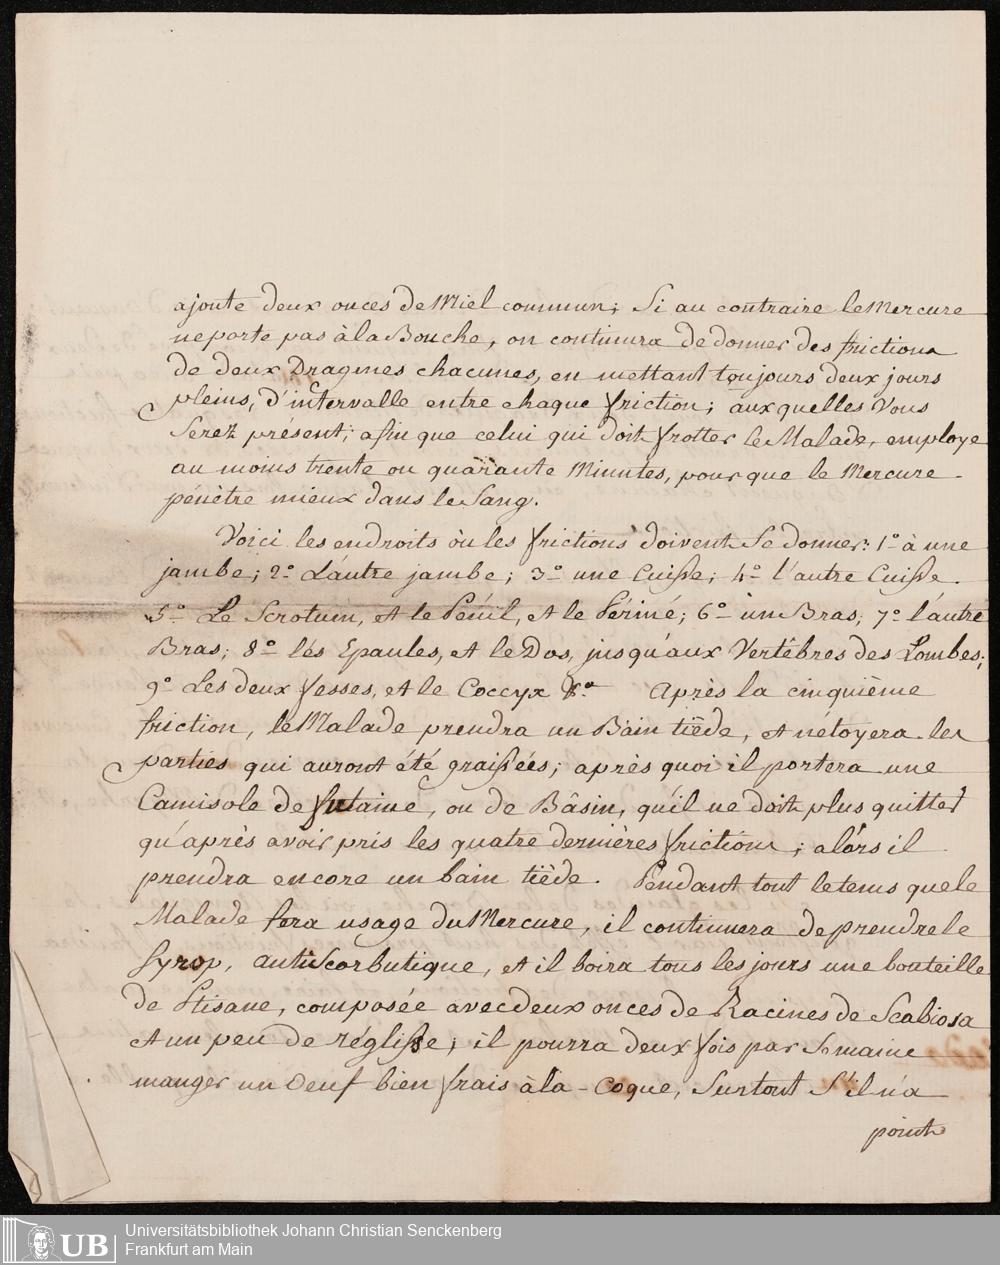 ajoute deux onces de Miel commun; Si au contraire le Mercure
ne porte pas à la Bouche, on continura de donner des frictions
de deux Dragmes chacunes, en mettant toujours deux jours
pleins, d'intervalle entre chaque friction; aux quelles Vous
Serez présent; afin que celui qui doit frotter le Malade, employe
au moins trente ou quarante Minutes, pour que le Mercure
pénètre mieux dans le Sang.
Voici les endroits où les frictions doivent Se donner: 1.º à une
jambe; 2.º L'autre jambe; 3.º une Cuisse; 4.º l'autre Cuisse.
5.º Le Scrotum, et le Pénil, et le Périné; 6.º un Bras; 7.º l'autre
Bras; 8.º lés Epaules, et le Dos, jusqu'aux Vertêbres des Lombes;
9.º Les deux fesses, et le Coccyx Après la cinquième
friction, le Malade prendra un Bain tiède, et nétoyera les
parties qui auront été graissées; après quoi il portera une
Camisole de futaine, ou de Bâsin, qu'il ne doit plus quitter
qu'après avoir pris les quatre dernières frictions; alors il
prendra encore un bain tiède. Pendant tout le tems que le
Malade fera usage du Mercure, il continuera de prendre le
Syrop, antiScorbutique, et il boira tous les jours une bouteille
de Ptisane, composée avec deux onces de Racines de Scabiosa
et un peu de réglisse; il pourra deux fois par Semaine
manger un Oeuf bien frais à la-Coque, Surtout S'il n'a
point
Universitätsbibliothek Johann Christian Senckenberg
Frankfurt am Main
UB